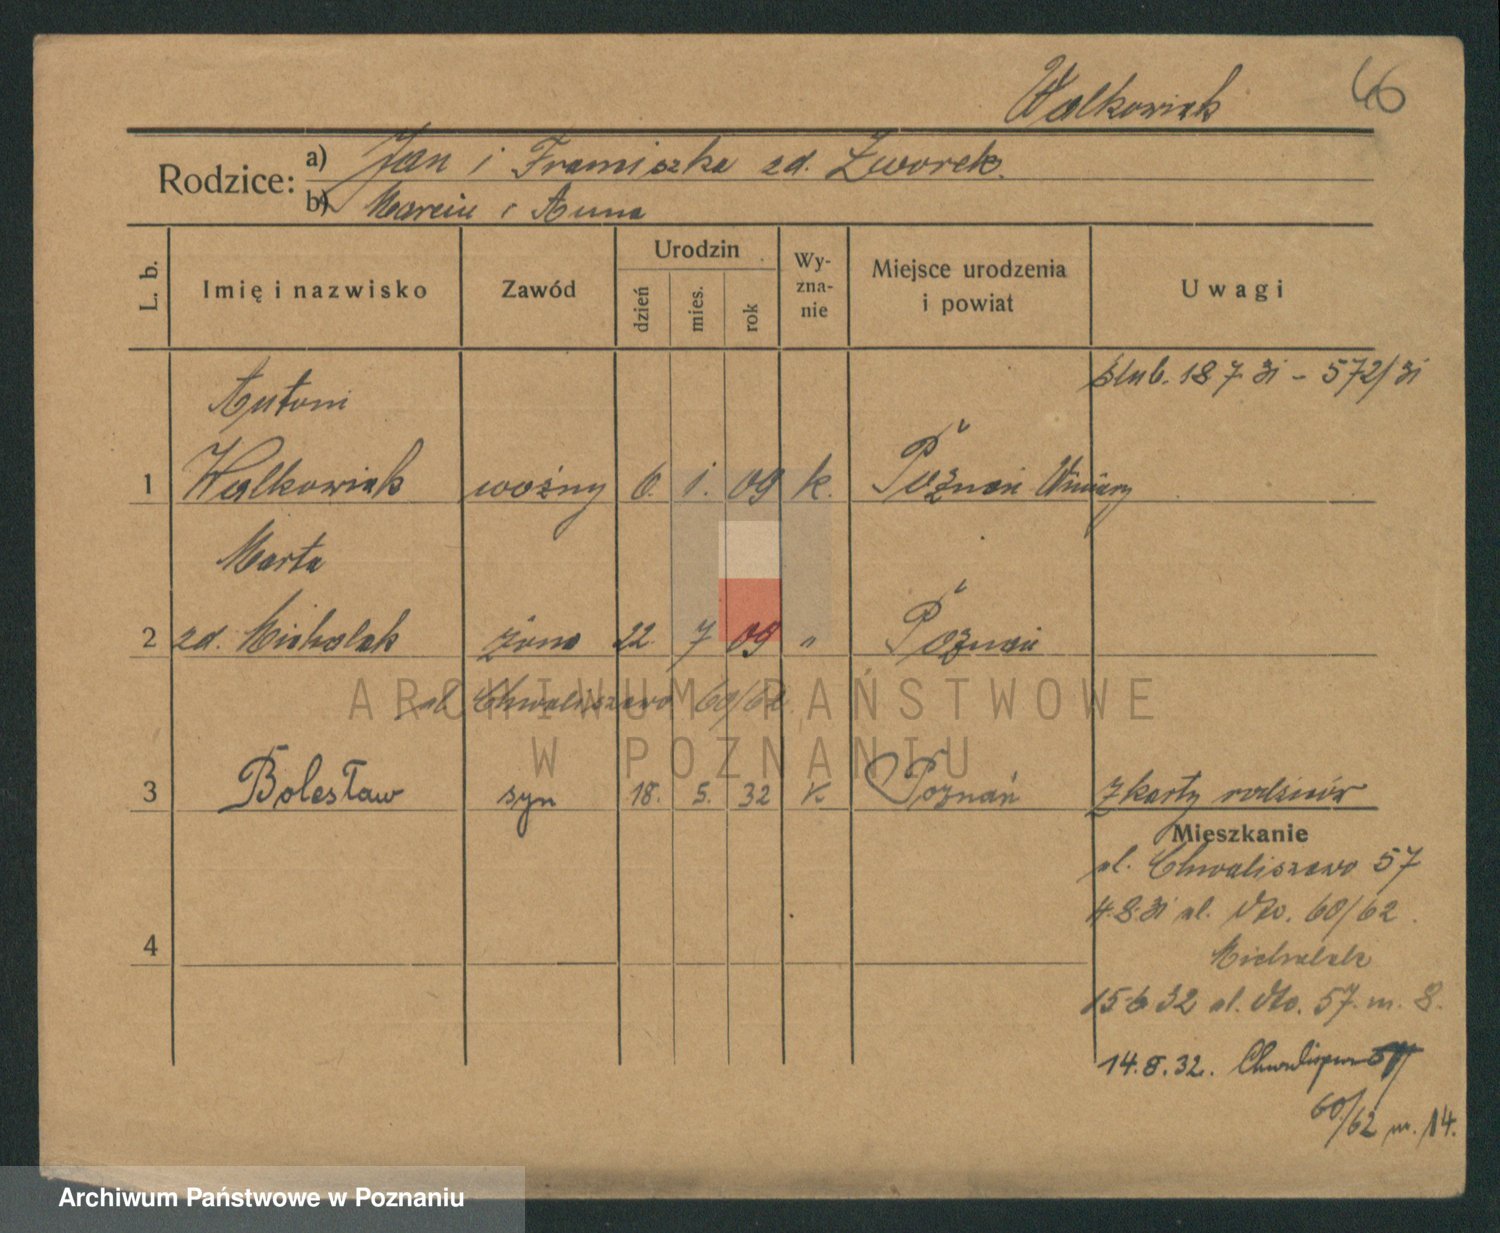 Walkowiak 46
Rodzice: a) Jan i Franciszka zd. Zworek.
b) Marcin i Anna
L. b. Imię i nazwisko Zawód Urodzin dzień mies. rok Wy-zna-nie Miejsce urodzenia i powiat Uwagi
ślub. 18 7 31 - 572/31
Antoni
1 Walkowiak woźny 6. 1. 09 k. Poznań Winiary
Marta
2 zd. Michalak żona 22. 7 09 " Poznań
ul. Chwaliszewo 60/62
3 Bolesław syn 18. 5. 32 k Poznań z karty rodziców
Mieszkanie
ul. Chwaliszewo 57
4.8.31 ul. dto. 60/62.
4
Michalak
15 6 32 ul. dto. 57. m. 8.
14.8.32. Chwaliszewo 57
60/62 m. 14.
ARCHIWUM PAŃSTWOWE
W POZNANIU
Archiwum Państwowe w Poznaniu